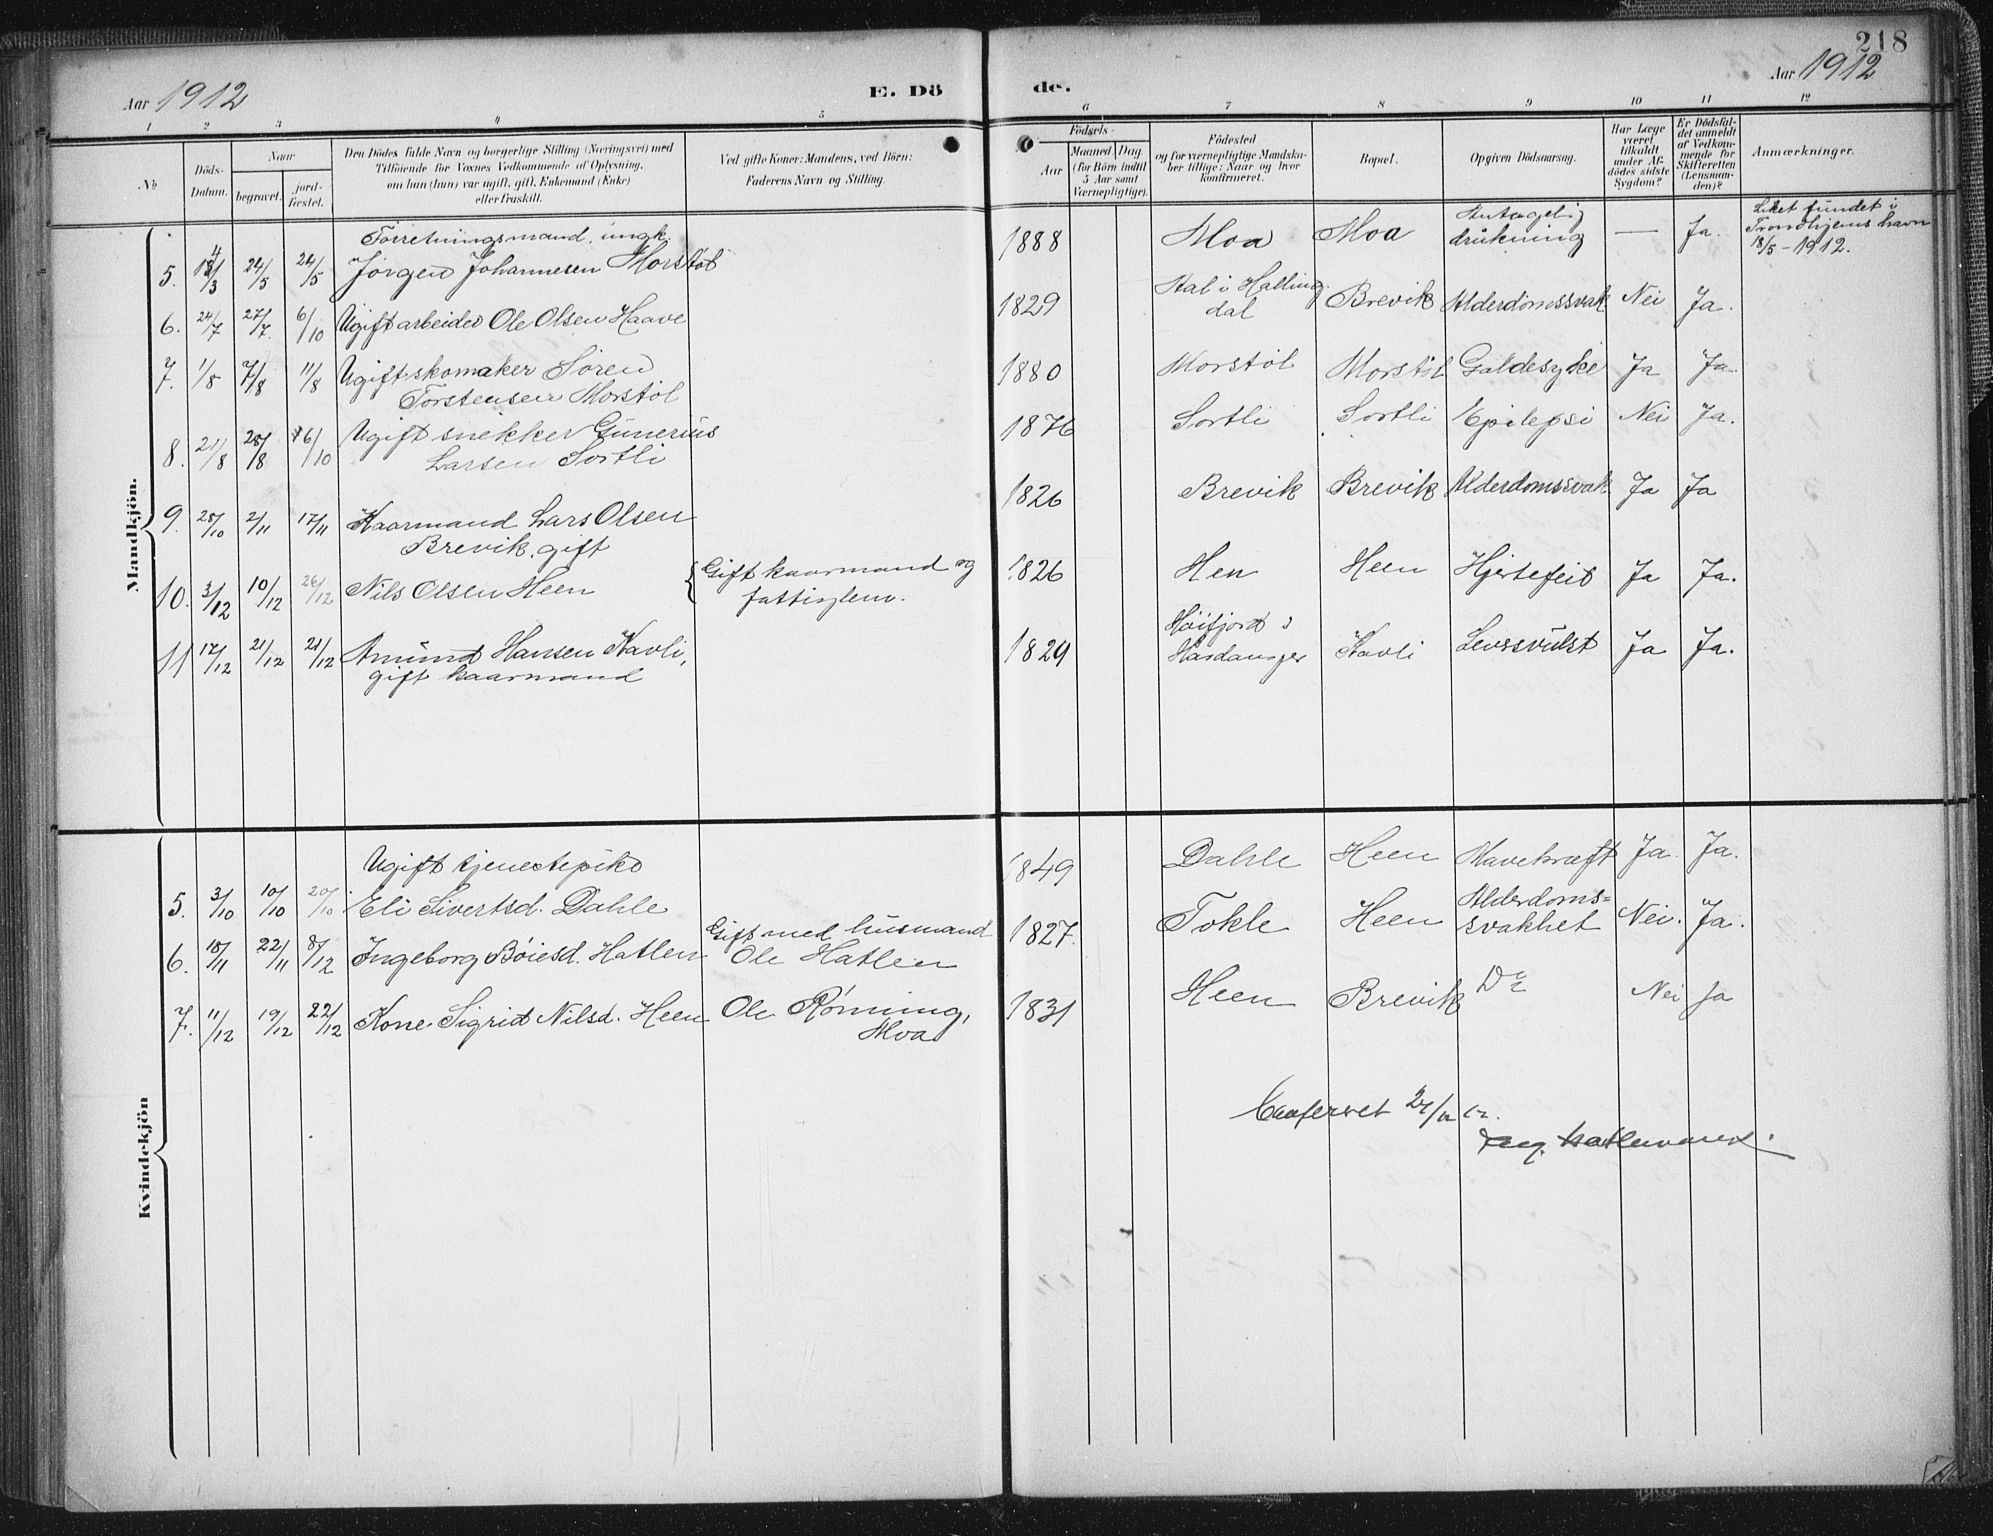 218
Aar 1912
E. Dö
de.
Aar 1912
1 2 3 4 5 6 7 8 9 10 11 12
No
Döds-
Datum.
Naar
begravet.
jord-
fæstet.
Den Dödes fulde Navn og borgerlige Stilling (Næringsvei) med
Tilföiende for Voxnes Vedkommende af Oplysning,
om han (hun) var ugift, gift, Enkemand (Enke)
eller fraskilt.
Ved gifte Koner: Mandens, ved Börn:
Faderens Navn og Stilling.
Födsels-
Aar
Maaned Dag
(for Börn indtil
5 Aar samt
Værnepligtige).
Födested
og for værnepligtige Mandska-
ber tillige: Naar og hvor
konfirmeret.
Bopæl.
Opgiven Dödsaarsag.
Har Læge
været
tilkaldt
under Af-
dödes sidste
Sygdom?
Er Dödsfal-
det anmeldt
af Vedkom-
mende for
Skifteretten
(Lensman-
den)?
Anmærkninger.
Mandkjön.
Forretningsmand, ungk.
5. 24/5 24/5 Jørgen Johannesen Morstøl 1888 Moa Moa Antagelig drukning — Ja. Liket fundet i
Trondhjems havn
18/5 - 1912.
6. 24/7 27/7 6/10 Ugift arbeider Ole Olsen Haave 1829 Aal i Halling-
dal Brevik Alderdomssvak Nei Ja.
7. 1/8 7/8 11/8 Ugift skomaker Søren
Torstensen Morstøl 1880 Morstøl Morstøl Galdesyke Ja Ja.
8. 21/8 28/8 6/10 Ugift snekker Gunerius
Larsen Sortli 1876 Sortli Sortli Epilepsi Nei Ja.
9. 28/10 2/11 17/11 Kaarmand Lars Olsen
Brevik, gift 1826 Brevik Brevik Alderdomssvak Ja Ja
10. 3/12 10/12 26/12 Nils Olsen Heen Gift kaarmand og
fattiglem. 1826 Hen Heen Hjertefeil Ja Ja.
11 17/12 21/12 21/12 Amund Hansen Kavli,
gift kaarmand 1829 Hardanger Kavli Ja Ja.
Kvindekjön
Ugift tjenestepike
5. 3/10 10/10 20/10 Eli Sivertsd. Dahle 1849 Dahle Heen Mavekræft Ja. Ja.
6. 18/11 22/11 8/12 Ingeborg Bøiesd. Hatlen Gift med husmand
Ole Hatlen 1827. Tokle Heen Alderdoms=
svakhet Nei. Ja.
7. 11/12 19/12 22/12 Kone Sigrid Nilsd. Heen Ole Rønning,
Moa 1831 Heen Brevik Do Nei Ja
Confereret